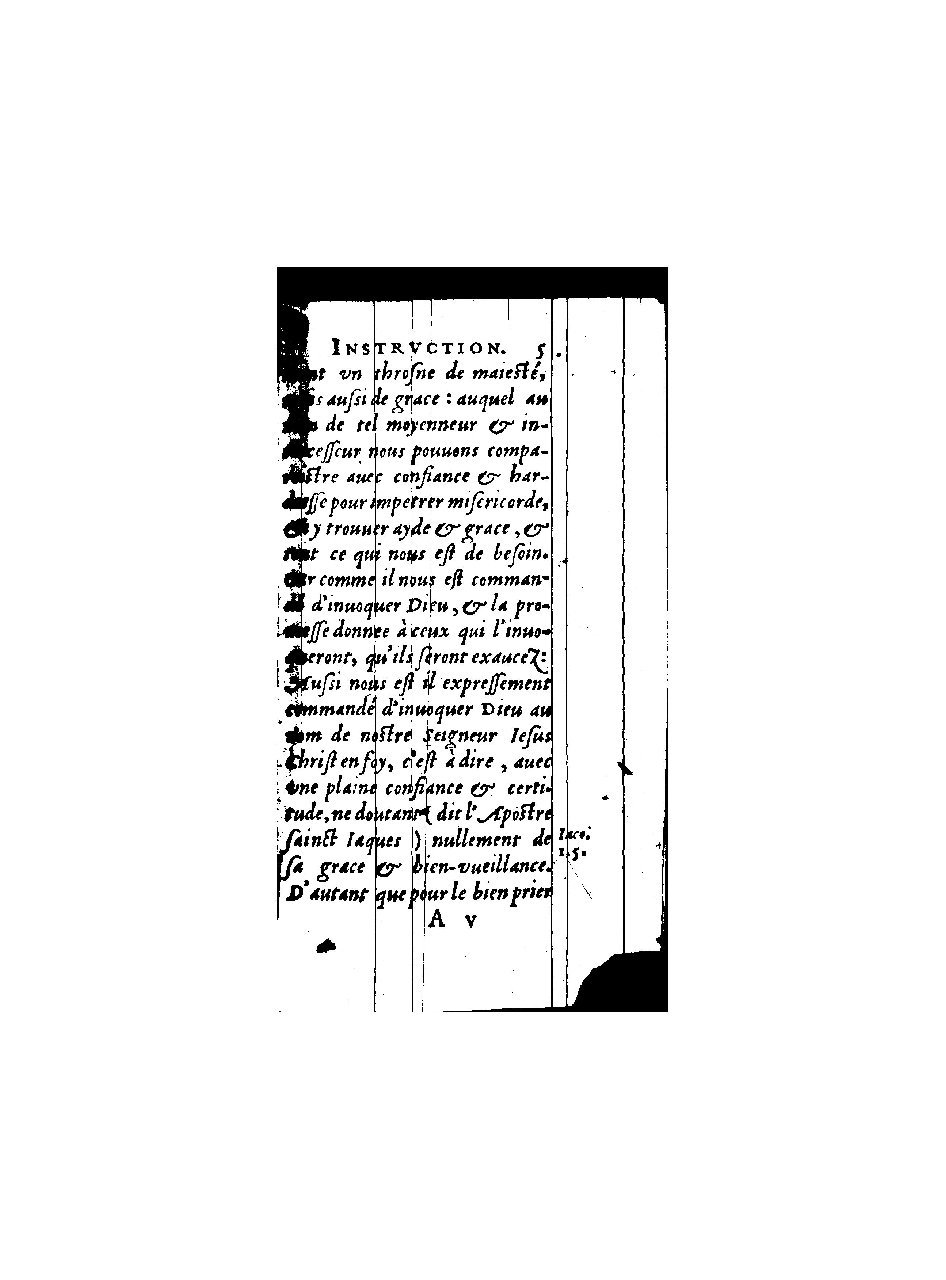 INSTRVCTION. 5
vn throſne de maieſté,
auſsi de grace : auquel au
de tel moyenneur & in-
nous pouuons compa-
auec confiance & har-
pour impetrer miſericorde,
y trouuer ayde & grace , &
ce qui nous eſt de beſoin.
comme il nous eſt comman-
d'inuoquer Dieu, & la pro-
meſſe donnee à ceux qui l'inuo-
queront, qu'ils ſeront exaucez:
Auſsi nous eſt il expreſſement
commandé d'inuoquer Dieu au
nom de noſtre Seigneur Ieſus
Chriſt en foy, c'eſt à dire , auec
vne plaine confiance & certi-
tude, ne doutant ( dit l'Apoſtre
ſainct Iaques ) nullement de
ſa grace & bien-vueillance.
D'autant que pour le bien prier
Iaco.
1.5.
A v